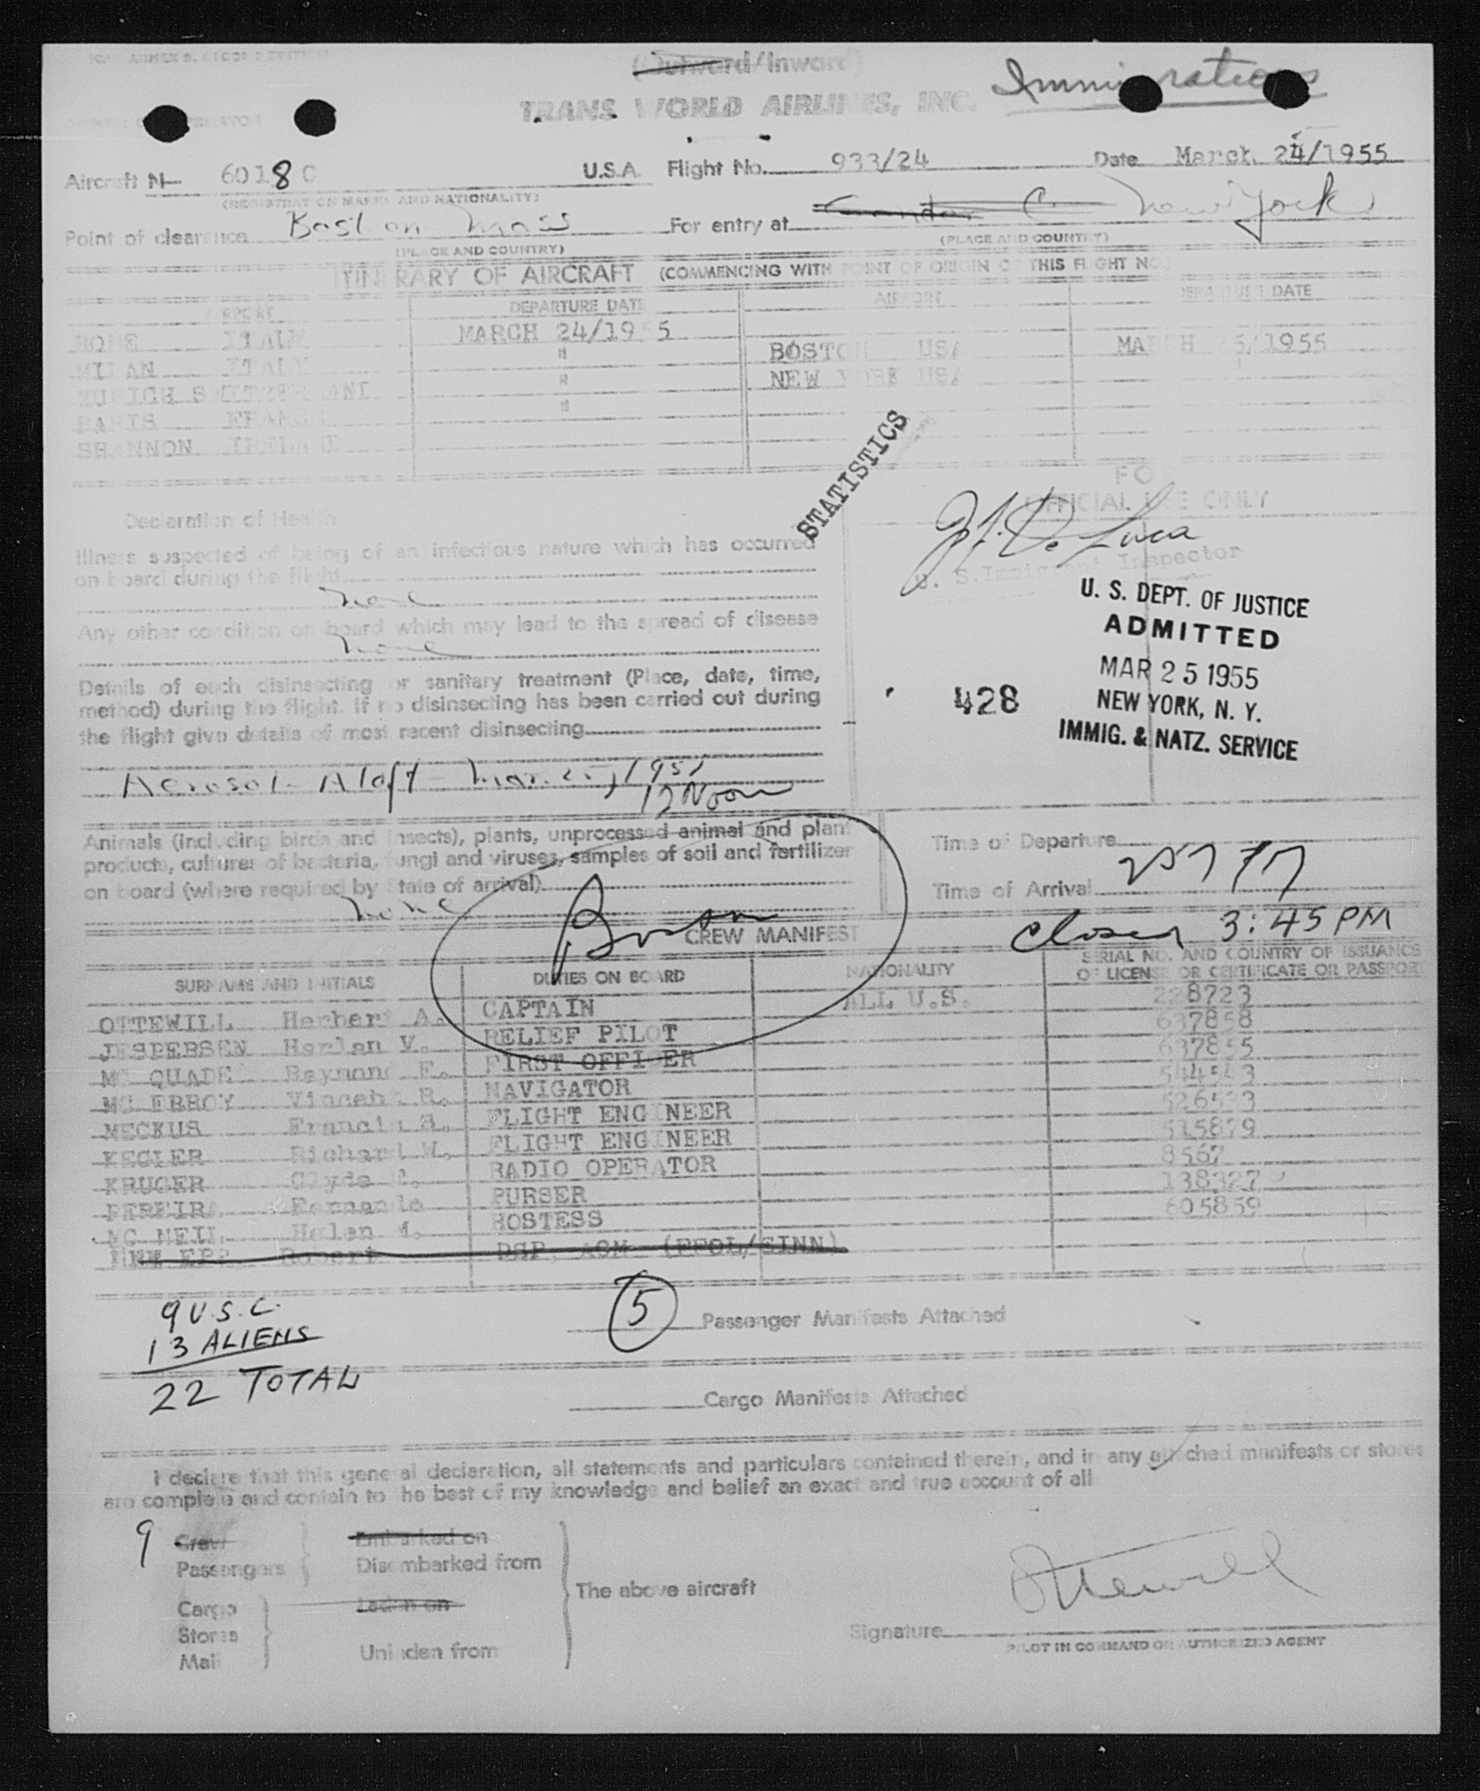 (Outward/Inward)
Immigration
TRANS WORLD AIRLINES, INC.
Aircraft N 6018C U.S.A. Flight No. 933/24 Date March 24/1955
(REGISTRATION MARKS AND NATIONALITY)
Point of clearance Boston Mass For entry at New York
(PLACE AND COUNTRY) (PLACE AND COUNTRY)
ITINERARY OF AIRCRAFT (COMMENCING WITH POINT OF ORIGIN OF THIS FLIGHT NO.
AIRPORT DEPARTURE DATE AIRPORT DEPARTURE DATE
ROME ITALY MARCH 24/1955
MILAN ITALY " BOSTON USA MARCH 25/1955
ZURICH SWITZERLAND " NEW YORK USA
PARIS FRANCE "
SHANNON IRELAND
STATISTICS
FOR
OFFICIAL USE ONLY
Declaration of Health
Illness suspected of being of an infectious nature which has occurred
on board during the flight
none
Any other condition on board which may lead to the spread of disease
none
Details of each disinsecting or sanitary treatment (Place, date, time,
method) during the flight. If no disinsecting has been carried out during
the flight give details of most recent disinsecting
Aerosol - Aloft - Mar. 25, 1955
12 Noon
De Luca
U. S. Immigrant Inspector
U. S. DEPT. OF JUSTICE
ADMITTED
MAR 25 1955
NEW YORK, N. Y.
IMMIG. & NATZ. SERVICE
428
Animals (including birds and insects), plants, unprocessed animal and plant
products, cultures of bacteria, fungi and viruses, samples of soil and fertilizer
on board (where required by State of arrival)
none
Time of Departure
Time of Arrival
closed 3:45 PM
Boston
CREW MANIFEST
SURNAME AND INITIALS DUTIES ON BOARD NATIONALITY SERIAL NO. AND COUNTRY OF ISSUANCE
OF LICENSE OR CERTIFICATE OR PASSPORT
OTTEWILL Herbert A. CAPTAIN ALL U.S. 228723
JESPERSEN Harlan V. RELIEF PILOT 637858
MC QUADE Raymond F. FIRST OFFICER 637855
MC ERROY Vincent R. NAVIGATOR 544543
MECKUS Francis FLIGHT ENGINEER 526533
KEGLER Richard W. FLIGHT ENGINEER 515829
KRUGER Clyde RADIO OPERATOR 8567
PEREIRA Fernando PURSER 138327
MC NEIL Helen M. HOSTESS 605859
Robert DSP. AGM
9 U.S.C.
13 ALIENS
22 TOTAL
5 Passenger Manifests Attached
Cargo Manifests Attached
I declare that this general declaration, all statements and particulars contained therein, and in any attached manifests or stores
are complete and contain to the best of my knowledge and belief an exact and true account of all
9 Crew Embarked on
Passengers Disembarked from
The above aircraft
Cargo Laden on
Stores
Mail Unladen from
Ottewill
Signature
PILOT IN COMMAND OR AUTHORIZED AGENT